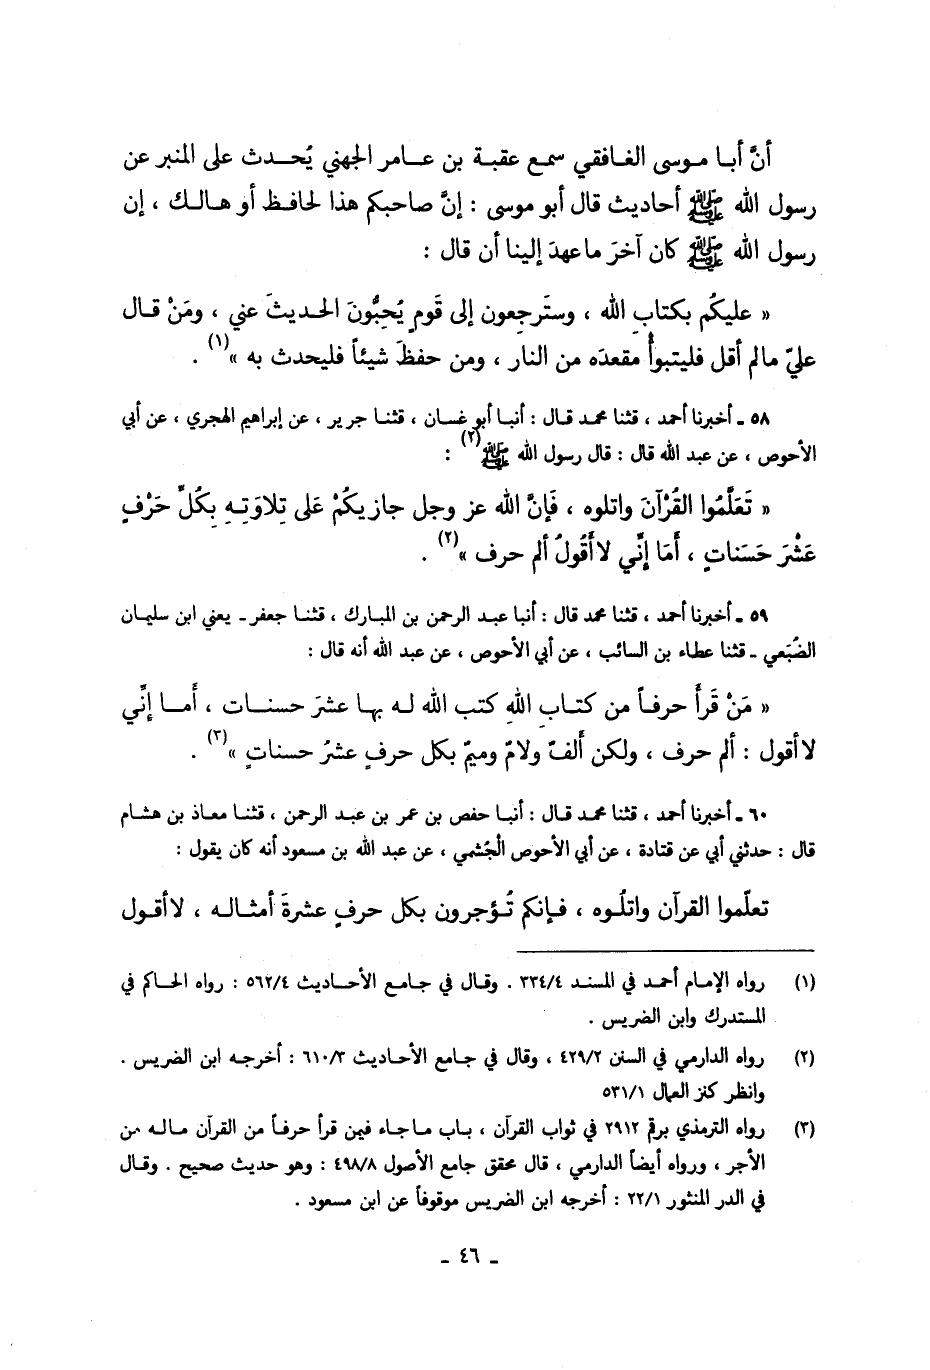 أنَّ أبا موسى الغافقي سمع عقبة بن عامر الجهني يُحدث على المنبر عن
رسول الله ﷺ أحاديث قال أبو موسى : إنَّ صاحبكم هذا لحافظ أو هالك ، إن
رسول الله ﷺ كان آخرَ ماعهدَ إلينا أن قال :
« عليكُم بكتابِ الله ، وستَرجعون إلى قَومٍ يُحِبُّونَ الحديثَ عني ، ومَنْ قال
عليّ مالم أقل فليتبوأْ مقعدَه من النار ، ومن حفظَ شيئاً فليحدث به »(١) .
٥٨ ـ أخبرنا أحمد ، قثنا محمد قال : أنبا أبو غسان ، قثنا جرير ، عن إبراهيم الهجري ، عن أبي
الأحوص ، عن عبد الله قال : قال رسول الله ﷺ(٢) :
« تَعَلَّمُوا القُرْآنَ واتلوه ، فَإنَّ الله عز وجل جازيكُمْ عَلى تِلاوَتِهِ بِكُلِّ حَرْفٍ
عَشْرَ حَسَناتٍ ، أَمَا إنِّي لاأَقُولُ ألم حرف »(٢) .
٥٩ ـ أخبرنا أحمد ، قثنا محمد قال : أنبا عبد الرحمن بن المبارك ، قثنا جعفر ـ يعني ابن سليمان
الضُبَعي ـ قثنا عطاء بن السائب ، عن أبي الأحوص ، عن عبد الله أنه قال :
« مَنْ قَرأَ حرفاً من كتابِ اللهِ كتب الله له بها عشرَ حسنات ، أَما إنِّي
لاأقول : ألم حرف ، ولكن أَلفٌ ولامٌ وميمٌ بكل حرفٍ عشرُ حسناتٍ »(٣) .
٦٠ ـ أخبرنا أحمد ، قثنا محمد قال : أنبا حفص بن عمر بن عبد الرحمن ، قثنا معاذ بن هشام
قال : حدثني أبي عن قتادة ، عن أبي الأحوص الجُشمي ، عن عبد الله بن مسعود أنه كان يقول :
تعلّموا القرآن واتلُوه ، فإنكم تُؤجرون بكل حرفٍ عشرةَ أمثاله ، لاأقول
(١) رواه الإمام أحمد في المسند ٣٣٤/٤ . وقال في جامع الأحاديث ٥٦٢/٤ : رواه الحاكم في
المستدرك وابن الضريس .
(٢) رواه الدارمي في السنن ٤٢٩/٢ ، وقال في جامع الأحاديث ٦١٠/٣ : أخرجه ابن الضريس .
وانظر كنز العمال ٥٣١/١
(٣) رواه الترمذي برقم ٢٩١٢ في ثواب القرآن ، باب ماجاء فيمن قرأ حرفاً من القرآن ماله من
الأجر ، ورواه أيضاً الدارمي ، قال محقق جامع الأصول ٤٩٨/٨ : وهو حديث صحيح . وقال
في الدر المنثور ٢٢/١ : أخرجه ابن الضريس موقوفاً عن ابن مسعود .
ـ ٤٦ ـ